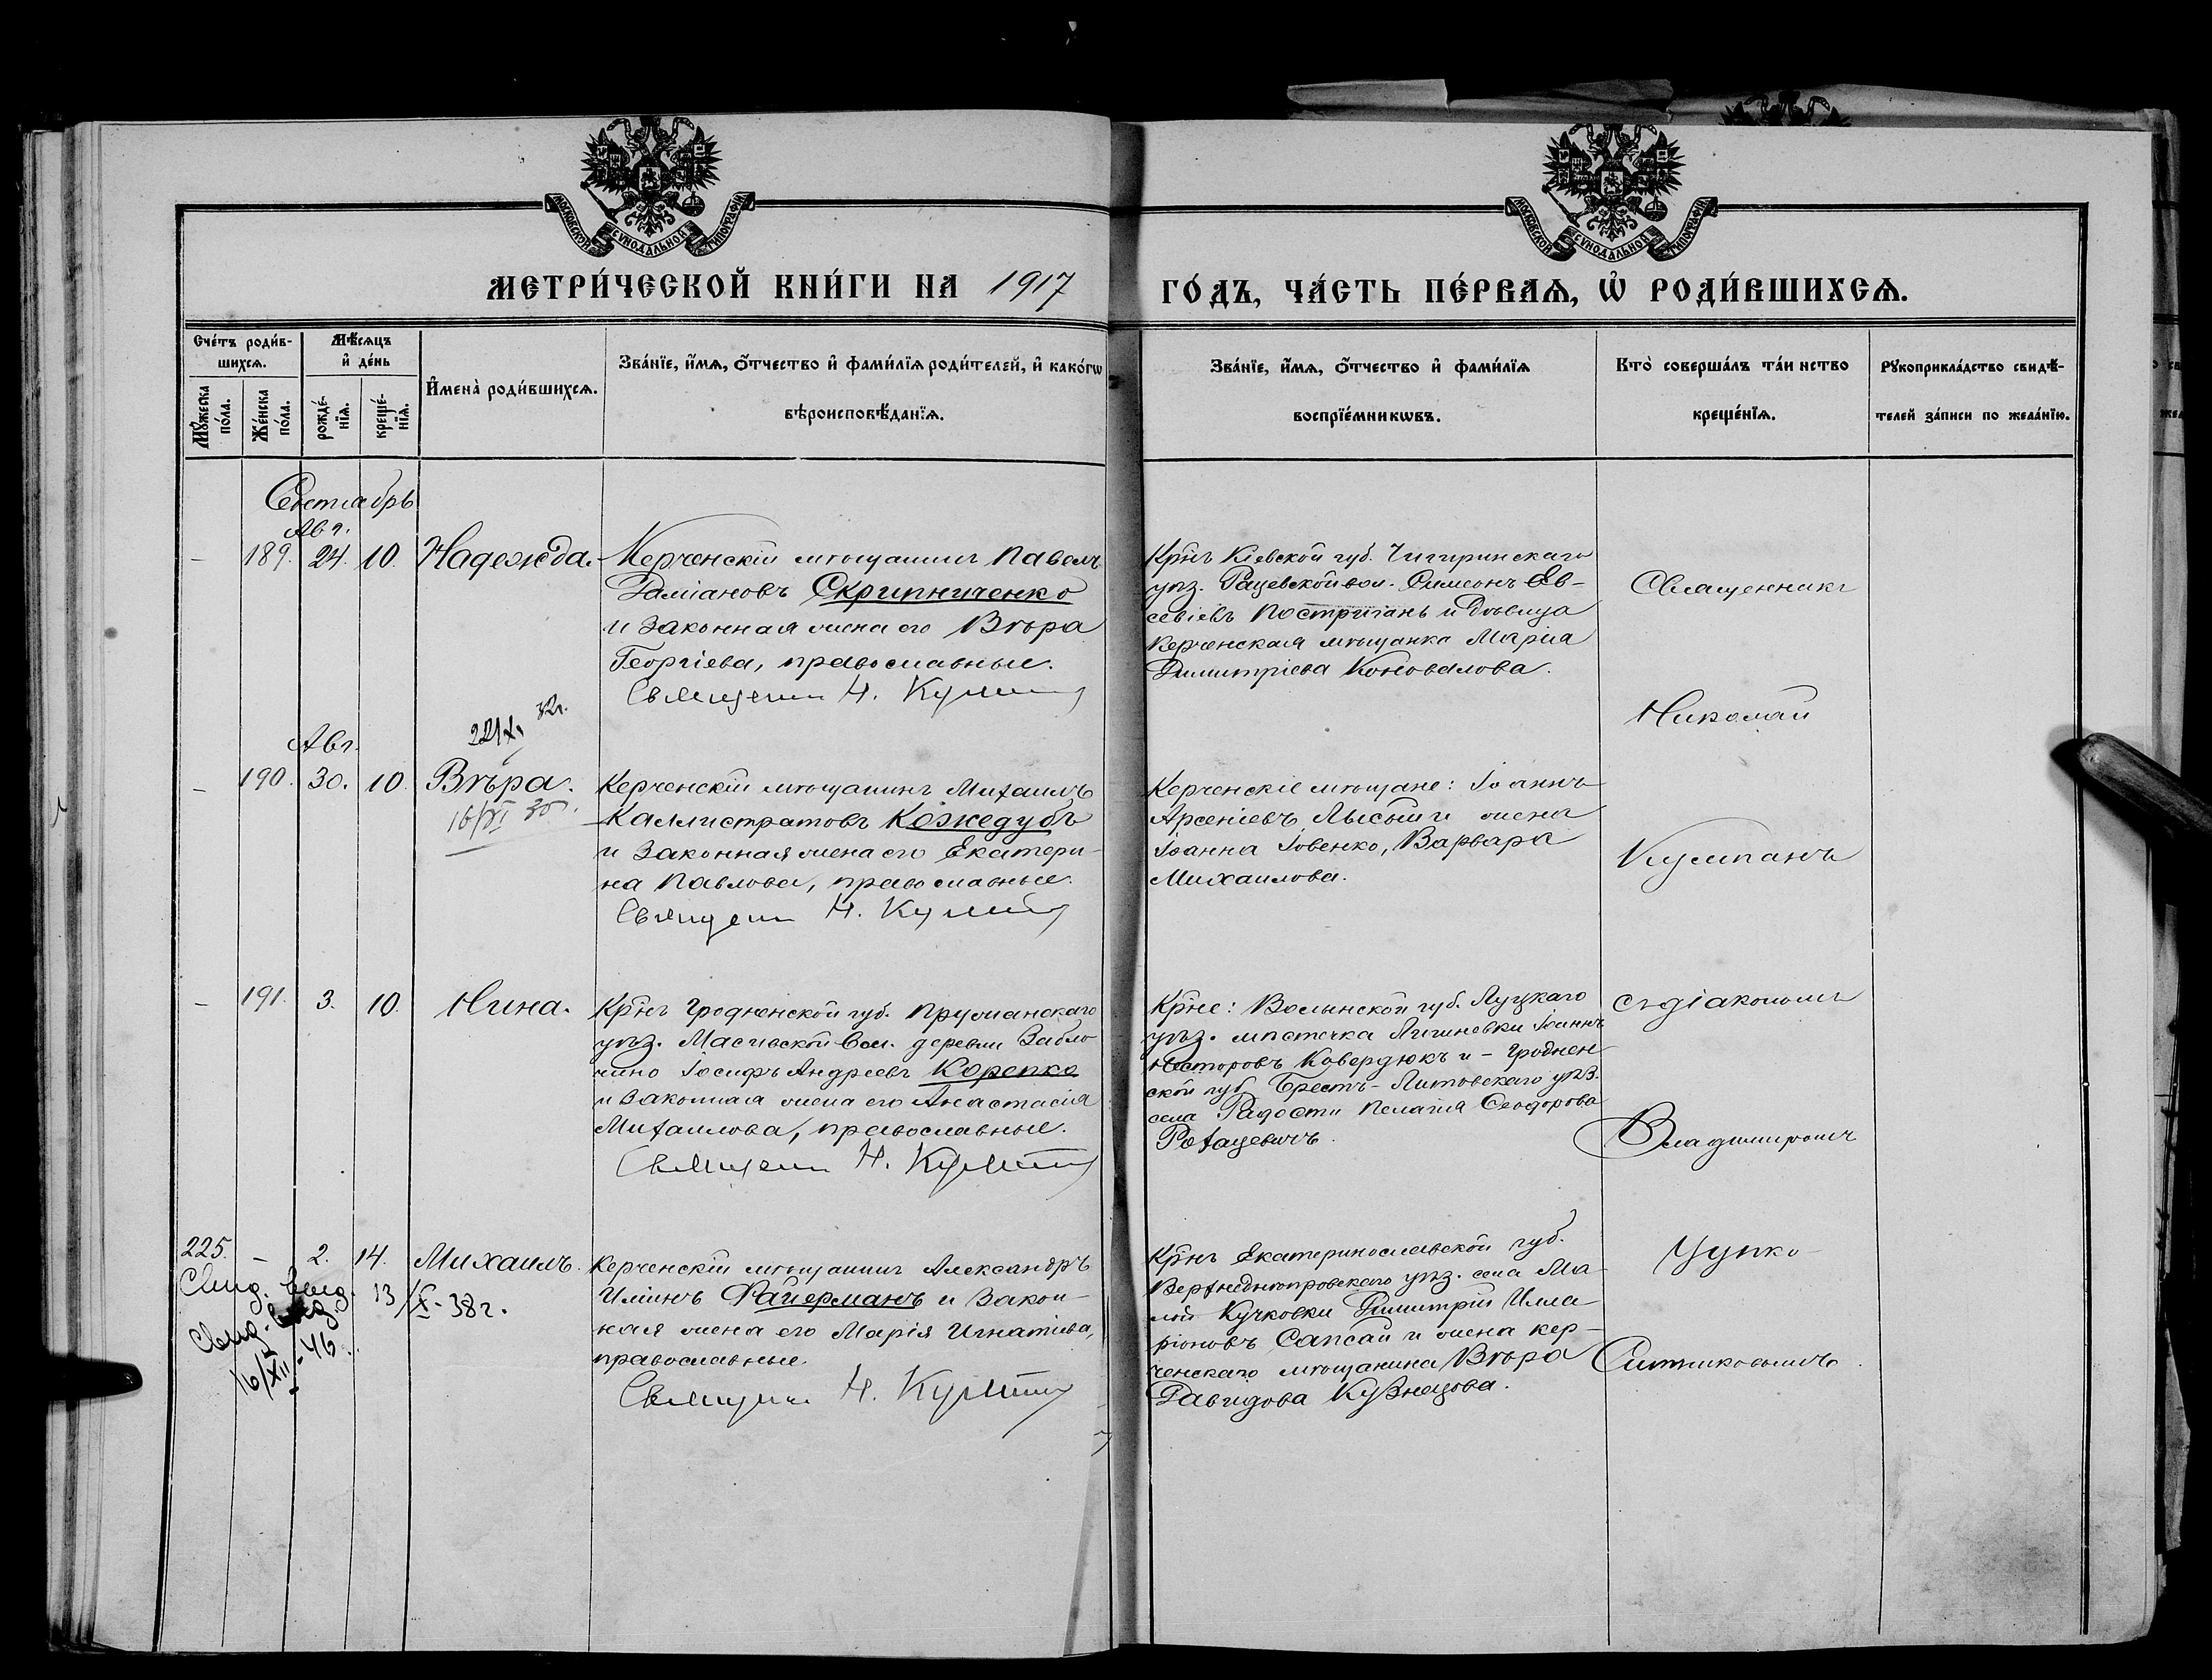 МОСКОВСКОЙ СУНОДАЛЬНОЙ ТИПОГРАФІИ
МОСКОВСКОЙ СУНОДАЛЬНОЙ ТИПОГРАФІИ
МЕТРИ́ЧЕСКОЙ КНИ́ГИ НА 1917
ГО́ДЪ, ЧА́СТЬ ПЕ́РВАѦ, Ѽ РОДИ́ВШИХСѦ.
Сче́тъ роди́в-
шихсѧ.
Мꙋ́жеска по́ла.
Же́нска по́ла.
Мѣ́сяцъ
и҆ де́нь
рожде́-
нїѧ.
креще́-
нїѧ.
И҆мена̀ роди́вшихсѧ.
Зва́нїе, и҆́мѧ, ѻ҆́тчество и҆ фами́лїѧ роди́телей, и҆ како́гѡ
вѣроисповѣ́данїѧ.
Зва́нїе, и҆́мѧ, ѻ҆́тчество и҆ фами́лїѧ
воспрїе́мникѡвъ.
Кто̀ соверша́лъ та́инство
креще́нїѧ.
Рꙋкоприкла́дство свидѣ́-
телей за́писи по жела́нїю.
Сентябрь
Авг.
– 189. 24. 10. Надежда.
Керченскій мѣщанинъ Павелъ
Даміановъ Скрипниченко
и законная жена его Вѣра
Георгіева, православные.
Священн Н. Кумпан
Крнъ Кіевской губ. Чигиринскаго
уѣз. Рацевской вол. Симеонъ Ев-
севіевъ Постригань и Дѣвица
Керченская мѣщанка Марія
Димитріева Коновалова.
22/X. 32г.
Авг.
– 190. 30. 10. Вѣра.
16/XI 35.
Керченскій мѣщанинъ Михаилъ
Каллистратовъ Кожедубъ
и законная жена его Екатери-
на Павлова, православные.
Священн Н. Кумпан
Керченскіе мѣщане: Іоаннъ
Арсеніевъ Лысый и жена
Іоанна Іовенко, Варвара
Михаилова.
– 191. 3. 10. Нина.
Крнъ Гродненской губ. Пружанскаго
уѣз. Масевской вол. деревни Забло
чино Іосифъ Андреевъ Корепко
и законная жена его Анастасія
Михаилова, православные.
Священн Н. Кумпан
Крне: Волынской губ. Луцкаго
уѣз. мѣстечка Іоаннъ
Несторовъ Ковердюкъ и – Гроднен-
ской губ. Брестъ-Литовскаго уѣз.
села Радости Пелагія Ѳеодорова
Рохацевичъ.
225. – 2. 14. Михаилъ.
Свид. выд. 13/X-38г.
Свид. выд.
16/XII-46.
Керченскій мѣщанинъ Александръ
Иліинъ Файерманъ и закон-
ная жена его Марія Игнатіева,
православные.
Священн Н. Кумпан
Крнъ Екатеринославской губ.
Верхнеднѣпровскаго уѣз. села Ма-
лой Кучковки Димитрій Илла-
ріоновъ Сапсай и жена кер-
ченскаго мѣщанина Вѣра
Давидова Кузнецова.
Священникъ
Николай
Кумпанъ
съ діакономъ
Владимиромъ
Чупко-
Ситниковымъ.